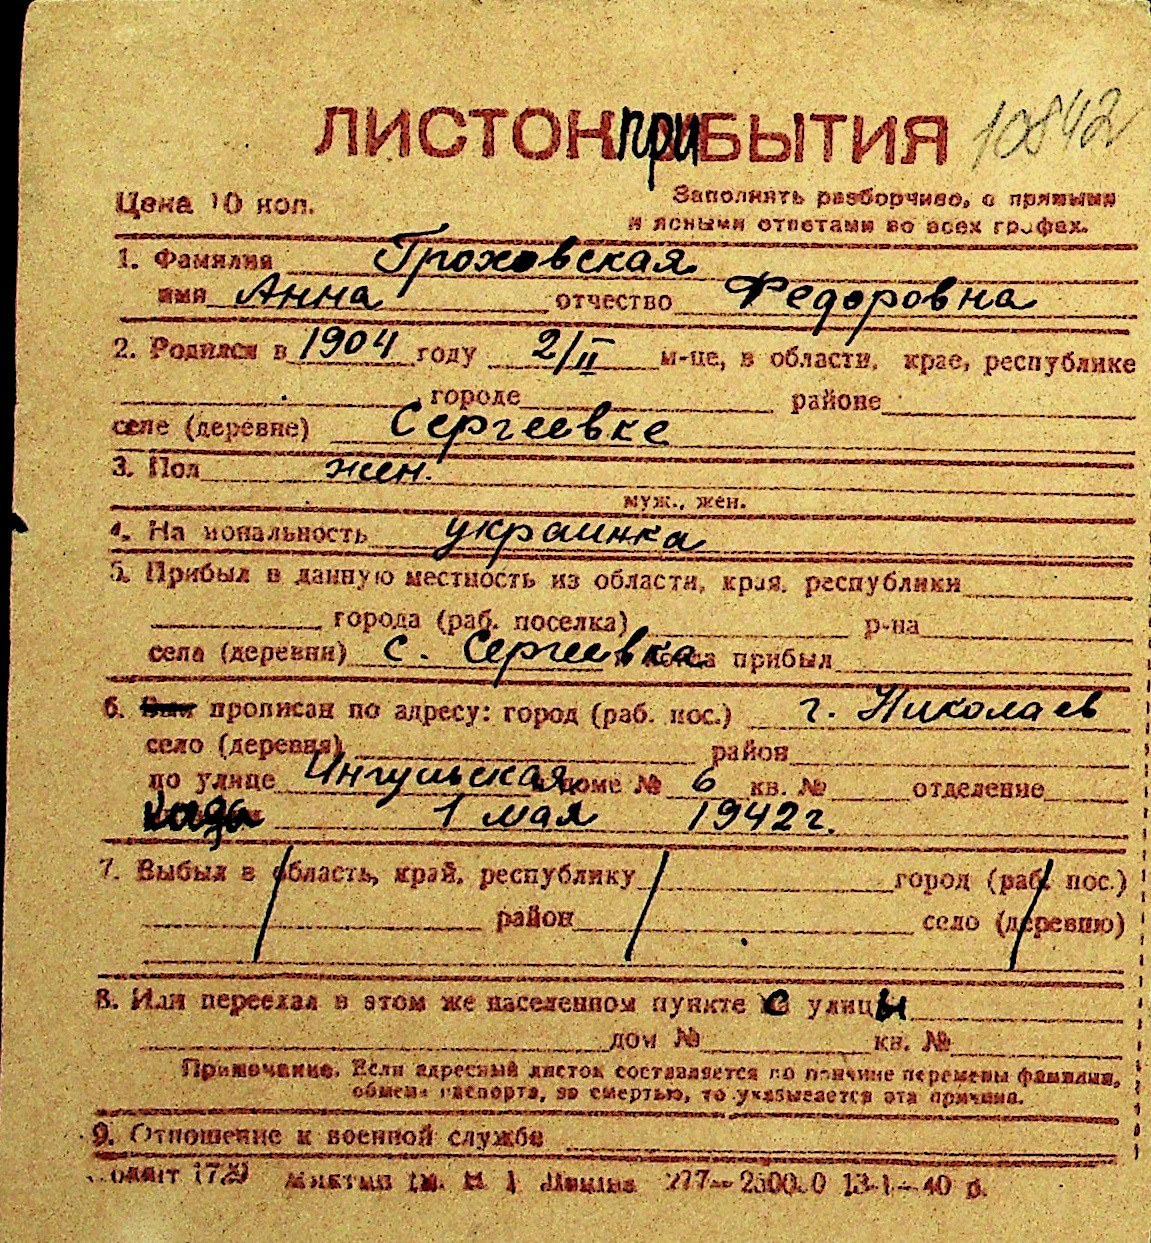 ЛИСТОК ПРИБЫТИЯ 10842
Цена 10 коп.
Заполнять разборчиво, с прямыми
и ясными ответами во всех графах.
1. Фамилия Гроховская
имя Анна отчество Федоровна
2. Родился в 1904 году 2/II м-це, в области, крае, республике
городе районе
селе (деревне) Сергеевке
3. Пол жен.
муж., жен.
4. Национальность украинка
5. Прибыл в данную местность из области, края, республики
города (раб. поселка) р-на
села (деревни) с. Сергеевка когда прибыл
6. прописан по адресу: город (раб. пос.) г. Николаев
село (деревня) район
по улице Ингульская в доме № 6 кв. № отделение
когда 1 мая 1942 г.
7. Выбыл в область, край, республику город (раб. пос.)
район село (деревню)
8. Или переехал в этом же населенном пункте с улицы
дом № кв. №
Примечание. Если адресный листок составляется по причине перемены фамилии,
обмена паспорта, за смертью, то указывается эта причина.
9. Отношение к военной службе
277—2500.0 13-1—40 р.